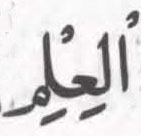 الْعِلْمِ